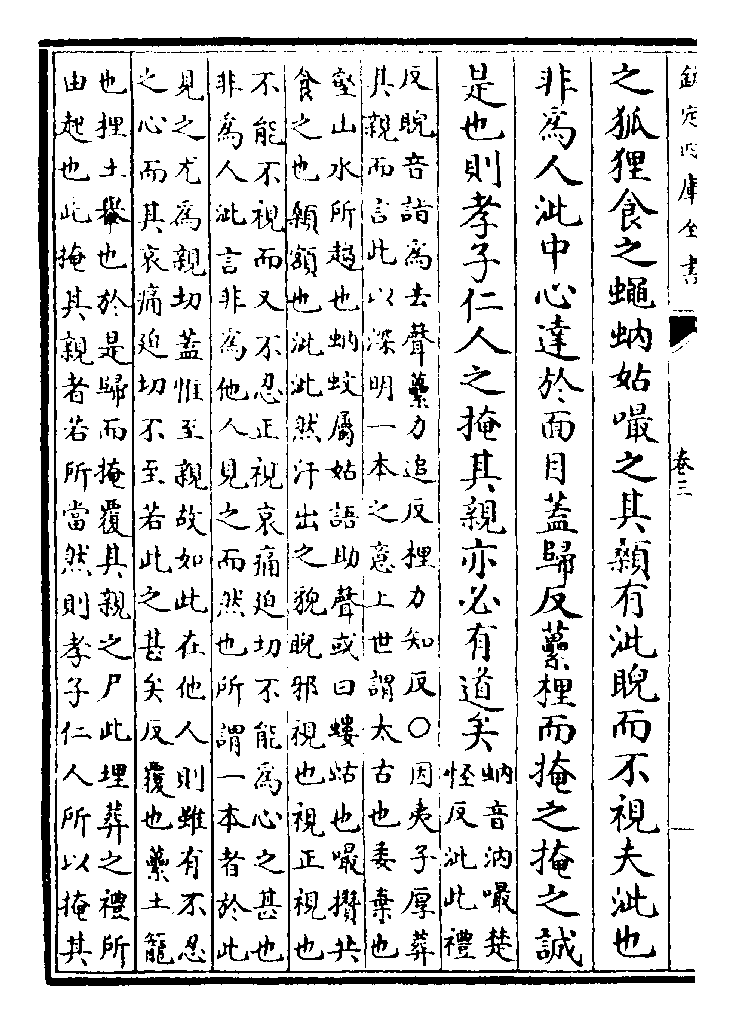 欽定四庫全書
卷三
之狐狸食之蠅蚋姑嘬之其顙有泚睨而不視夫泚也
非爲人泚中心達於面目蓋歸反虆梩而掩之掩之誠
是也則孝子仁人之掩其親亦必有道矣
蚋音汭嘬楚
怪反泚此禮
反睨音詣爲去聲虆力追反梩力知反○因夷子厚葬
其親而言此以深明一本之意上世謂太古也委棄也
壑山水所趨也蚋蚊屬姑語助聲或曰螻蛄也嘬攢共
食之也顙額也泚泚然汗出之貌睨邪視也視正視也
不能不視而又不忍正視哀痛迫切不能爲心之甚也
非爲人泚言非爲他人見之而然也所謂一本者於此
見之尤爲親切蓋惟至親故如此在他人則雖有不忍
之心而其哀痛迫切不至若此之甚矣反覆也虆土籠
也梩土轝也於是歸而掩覆其親之尸此埋葬之禮所
由起也此掩其親者若所當然則孝子仁人所以掩其